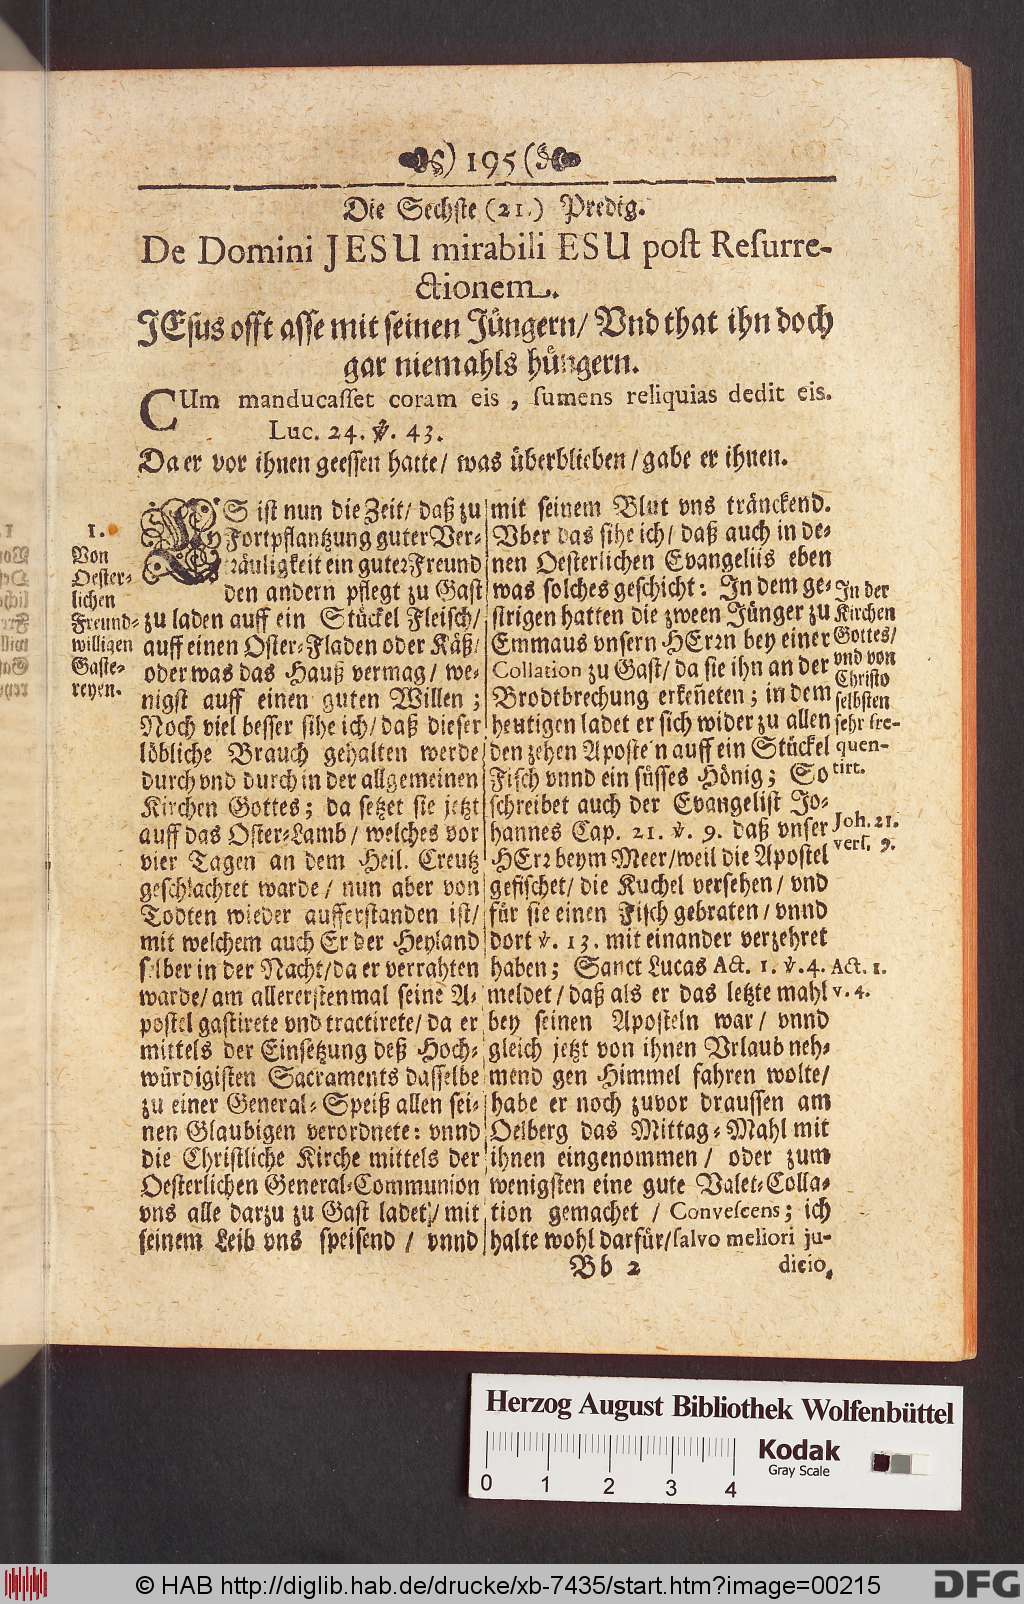 ) 195 (
Die Sechste (21.) Predig.
De Domini JESU mirabili ESU post Resurre-
ctionem.
JEsus offt asse mit seinen Jüngern/ Vnd that ihn doch
gar niemahls hüngern.
CUm manducasset coram eis, sumens reliquias dedit eis.
Luc. 24. ℣. 43.
Da er vor ihnen geessen hatte/ was überblieben/ gabe er ihnen.
1.
Von
Oester-
lichen
Freund-
willigen
Gaste-
reyen.
ES ist nun die Zeit/ daß zu
Fortpflantzung guter Ver-
träuligkeit ein guter Freund
den andern pflegt zu Gast
zu laden auff ein Stückel Fleisch/
auff einen Oster-Fladen oder Käß/
oder was das Hauß vermag/ we-
nigst auff einen guten Willen;
Noch viel besser sihe ich/ daß dieser
löbliche Brauch gehalten werde
durch vnd durch in der allgemeinen
Kirchen Gottes; da setzet sie jetzt
auff das Oster-Lamb/ welches vor
vier Tagen an dem Heil. Creutz
geschlachtet warde/ nun aber von
Todten wieder aufferstanden ist/
mit welchem auch Er der Heyland
selber in der Nacht/ da er verrahten
warde/ am allererstenmal seine A-
postel gastirete vnd tractirete/ da er
mittels der Einsetzung deß Hoch-
würdigisten Sacraments dasselbe
zu einer General-Speiß allen sei-
nen Glaubigen verordnete: vnnd
die Christliche Kirche mittels der
Oesterlichen General-Communion
vns alle darzu zu Gast ladet/ mit
seinem Leib vns speisend/ vnnd
mit seinem Blut vns tränckend.
Vber das sihe ich/ daß auch in de-
nen Oesterlichen Evangeliis eben
was solches geschicht: In dem ge-
strigen hatten die zween Jünger zu
Emmaus vnsern HErrn bey einer
Collation zu Gast/ da sie ihn an der
Brodtbrechung erkeñeten; in dem
heutigen ladet er sich wider zu allen
den zehen Aposteln auff ein Stückel
Fisch vnnd ein süsses Hönig; So
schreibet auch der Evangelist Jo-
hannes Cap. 21. ℣. 9. daß vnser
HErr beym Meer/ weil die Apostel
gefischet/ die Kuchel versehen/ vnd
für sie einen Fisch gebraten/ vnnd
dort ℣. 13. mit einander verzehret
haben; Sanct Lucas Act. 1. ℣. 4.
meldet/ daß als er das letzte mahl
bey seinen Aposteln war/ vnnd
gleich jetzt von ihnen Vrlaub neh-
mend gen Himmel fahren wolte/
habe er noch zuvor draussen am
Oelberg das Mittag-Mahl mit
ihnen eingenommen/ oder zum
wenigsten eine gute Valet-Colla-
tion gemachet/ Convescens; ich
halte wohl darfür/ salvo meliori ju-
In der
Kirchen
Gottes/
vnd von
Christo
selbsten
sehr fre-
quen-
tirt.
Joh. 21.
vers. 9.
Act. 1.
v. 4.
Bb 2
dicio,
Herzog August Bibliothek Wolfenbüttel
0 1 2 3 4
Kodak
Gray Scale
© HAB http://diglib.hab.de/drucke/xb-7435/start.htm?image=00215
DFG